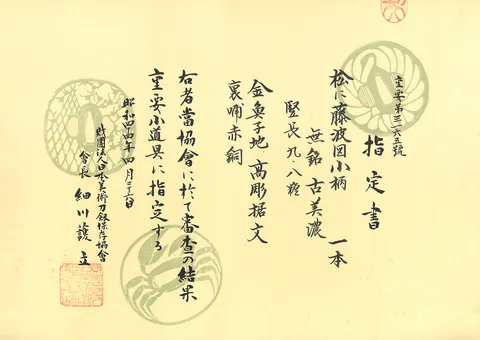 重要第三一六五號
指定書
松に藤波図小柄 一本
無銘 古美濃
竪長九、八糎
金魚子地 高彫据文
裏哺赤銅
右者當協會に於て審査の結果
重要小道具に指定する
昭和四十四年四月二十六日
財團法人日本美術刀剣保存協會
會長 細川護立